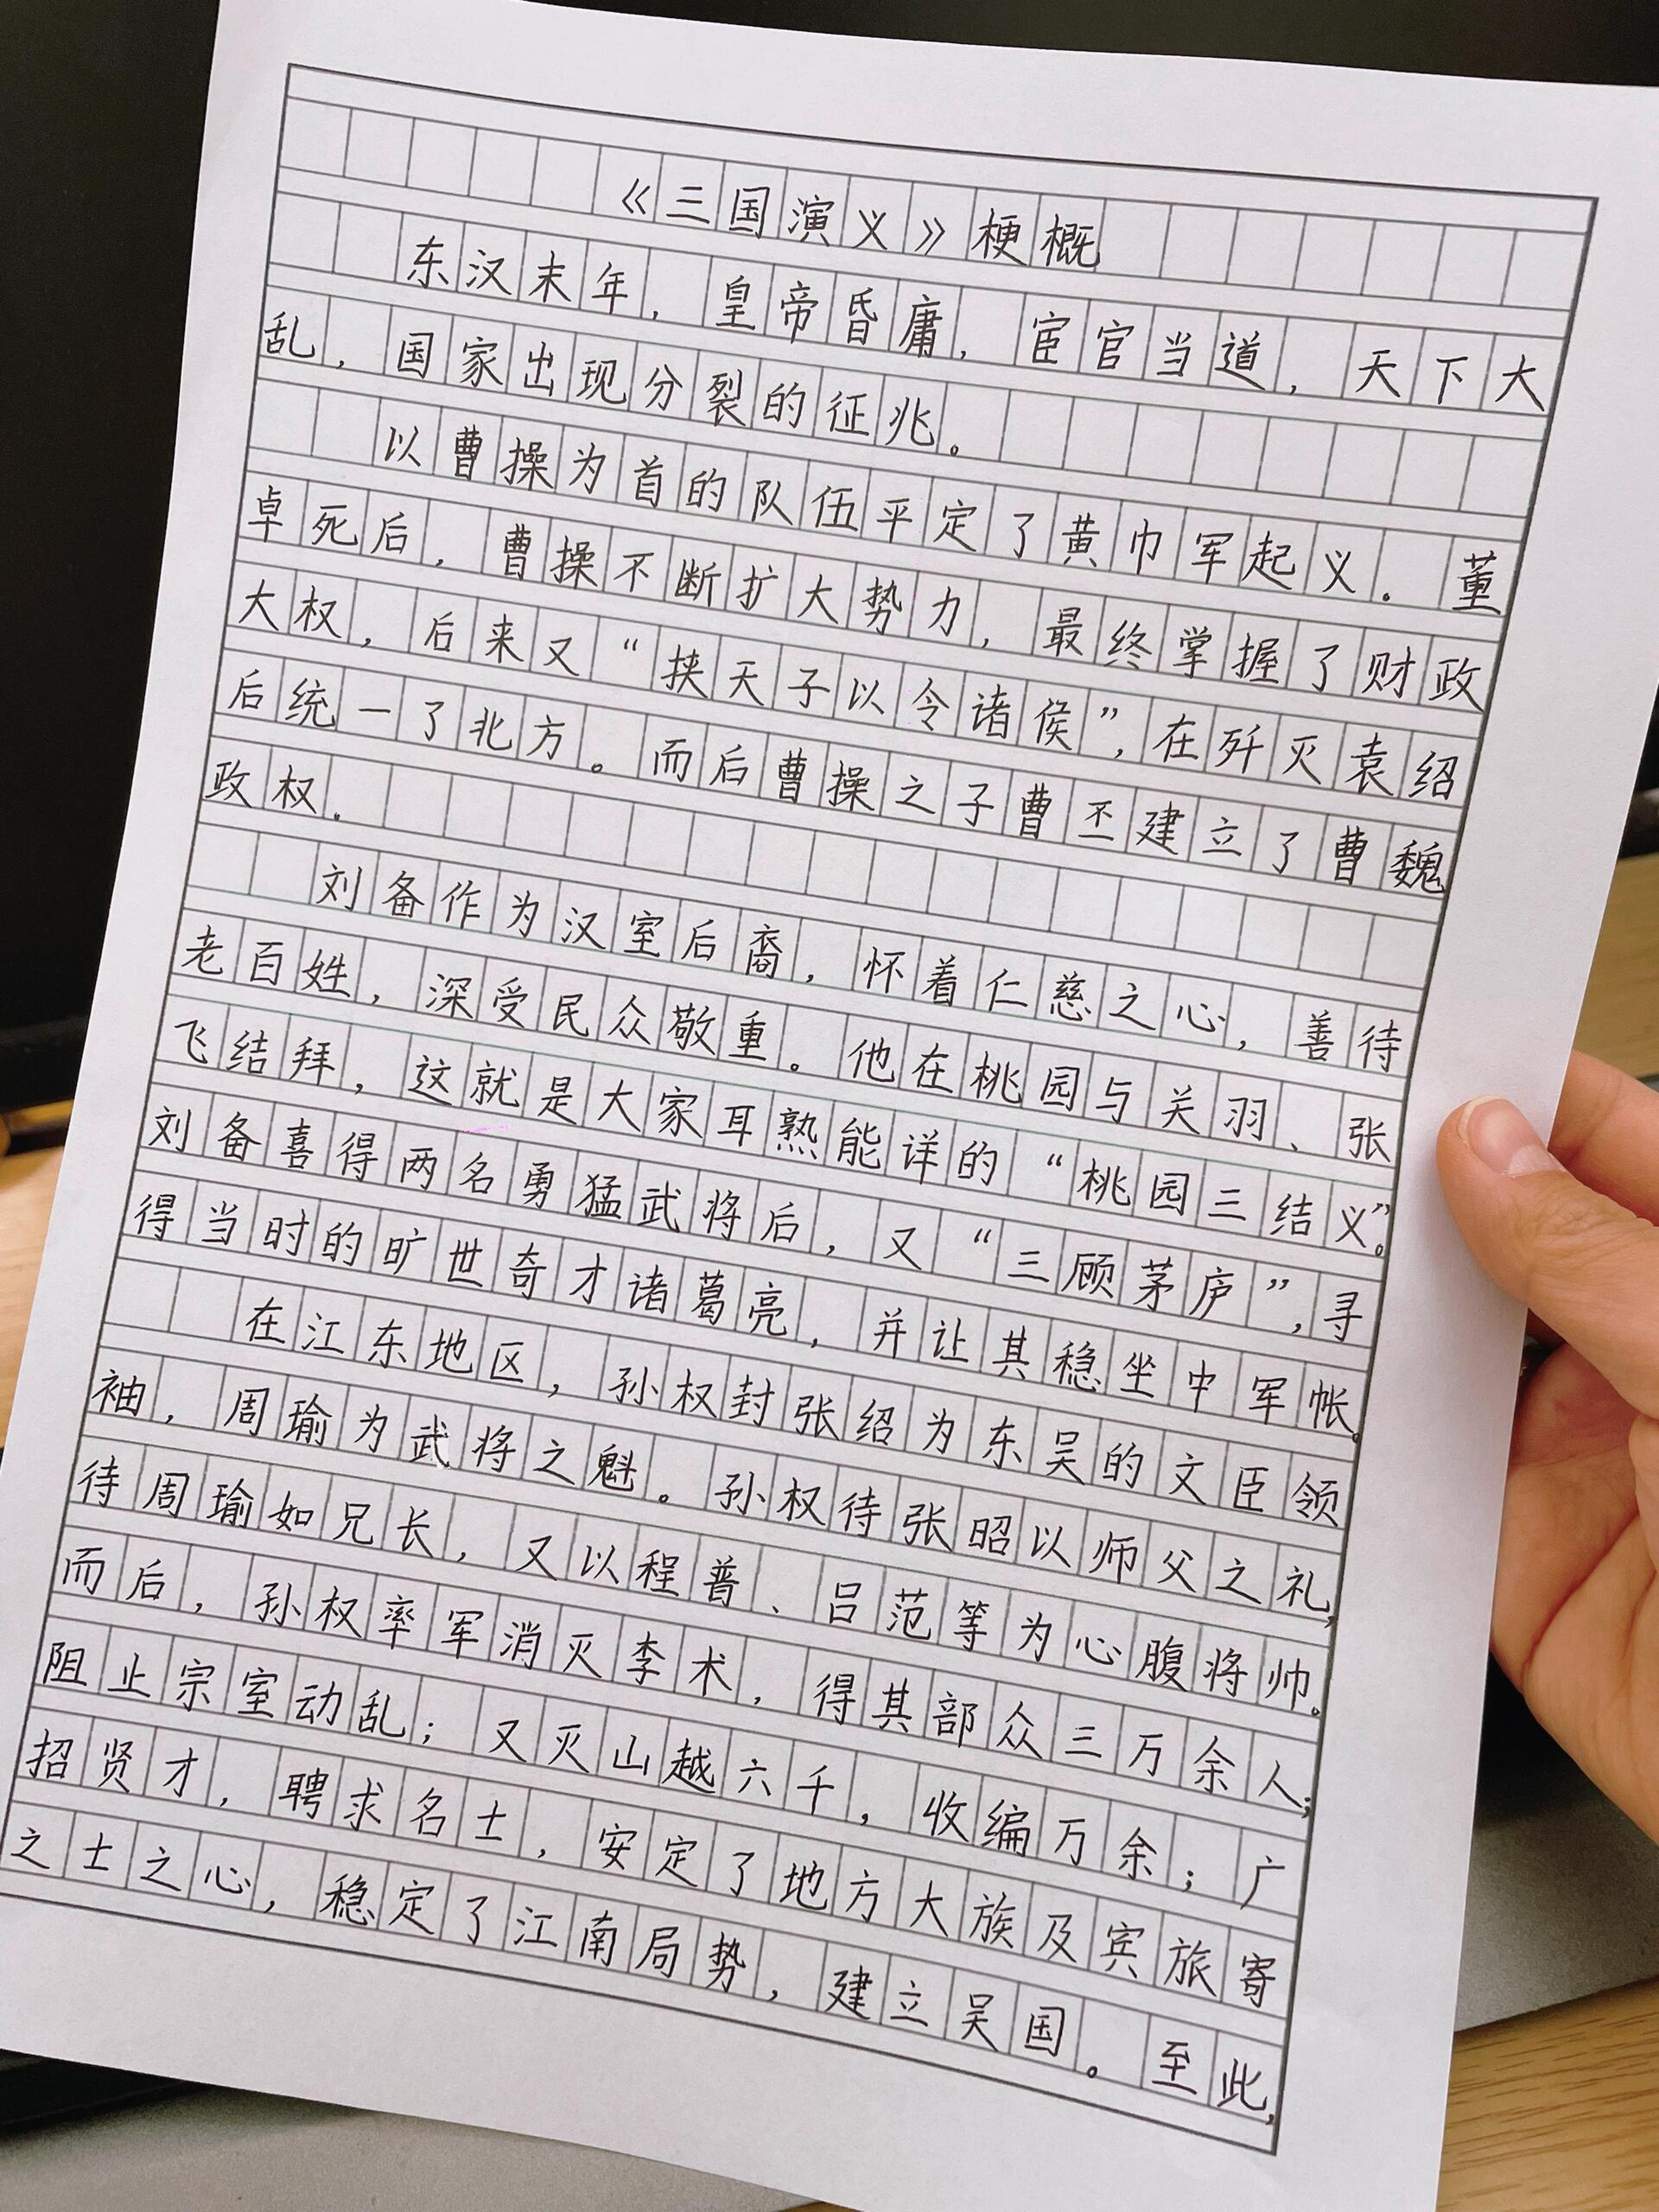 《三国演义》梗概
东汉末年，皇帝昏庸，宦官当道，天下大
乱，国家出现分裂的征兆。
以曹操为首的队伍平定了黄巾军起义。董
卓死后，曹操不断扩大势力，最终掌握了财政
大权，后来又“挟天子以令诸侯”，在歼灭袁绍
后统一了北方。而后曹操之子曹丕建立了曹魏
政权。
刘备作为汉室后裔，怀着仁慈之心，善待
老百姓，深受民众敬重。他在桃园与关羽、张
飞结拜，这就是大家耳熟能详的“桃园三结义”。
刘备喜得两名勇猛武将后，又“三顾茅庐”，寻
得当时的旷世奇才诸葛亮，并让其稳坐中军帐。
在江东地区，孙权封张绍为东吴的文臣领
袖，周瑜为武将之魁。孙权待张昭以师父之礼，
待周瑜如兄长，又以程普、吕范等为心腹将帅。
而后，孙权率军消灭李术，得其部众三万余人；
阻止宗室动乱；又灭山越六千，收编万余；广
招贤才，聘求名士，安定了地方大族及宾旅寄
之士之心，稳定了江南局势，建立吴国。至此，